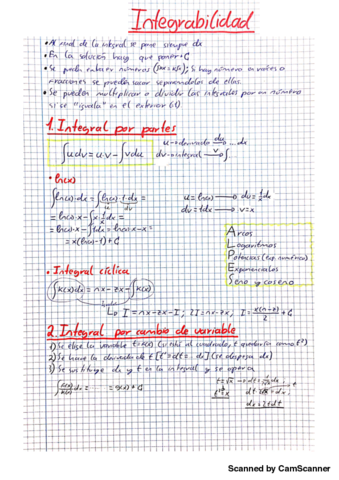 Integrabilidad
• Al final de la integral se pone siempre dx
• En la solución hay que poner +C
• Se puede extraer números (∫kx = k∫x); Si hay número o varios
fracciones se pueden sacar separandolos de ellas.
• Se pueden multiplicar o dividir las integrales por un número
si se "iguala" en el exterior (61)
1. Integral por partes
∫udv = u·v - ∫vdu
u → derivado du → ... dx
dv → integral v → ∫
• ln(x)
∫ln(x)·dx = ∫ln(x)·1·dx =
u dv
u = ln(x) → du = 1/x dx
dv = 1dx → v = x
= ln(x)·x - ∫x·1/x dx =
= ln(x)·x - ∫1dx = ln(x)·x - x =
= x(ln(x)-1) + C
Arcos
Logaritmos
Potencias (exp. numérico)
Exponenciales
Seno y coseno
• Integral cíclica
∫K(x)dx = nx - zx - ∫K(x)
↳ I = nx - zx - I; 2I = nx - zx; I = x(n-z)/2 + C
2. Integral por cambio de variable
1) Se elige la variable t = a(x) (si está al cuadrado, t quedaría como t²)
2) Se hace la derivada de t [t' = dt = dx] (se despeja dx)
3) Se sustituye dx y t en la integral y se opera
= g(x) + C
t = √x
t² = x
dx = 2tdt
Scanned by CamScanner